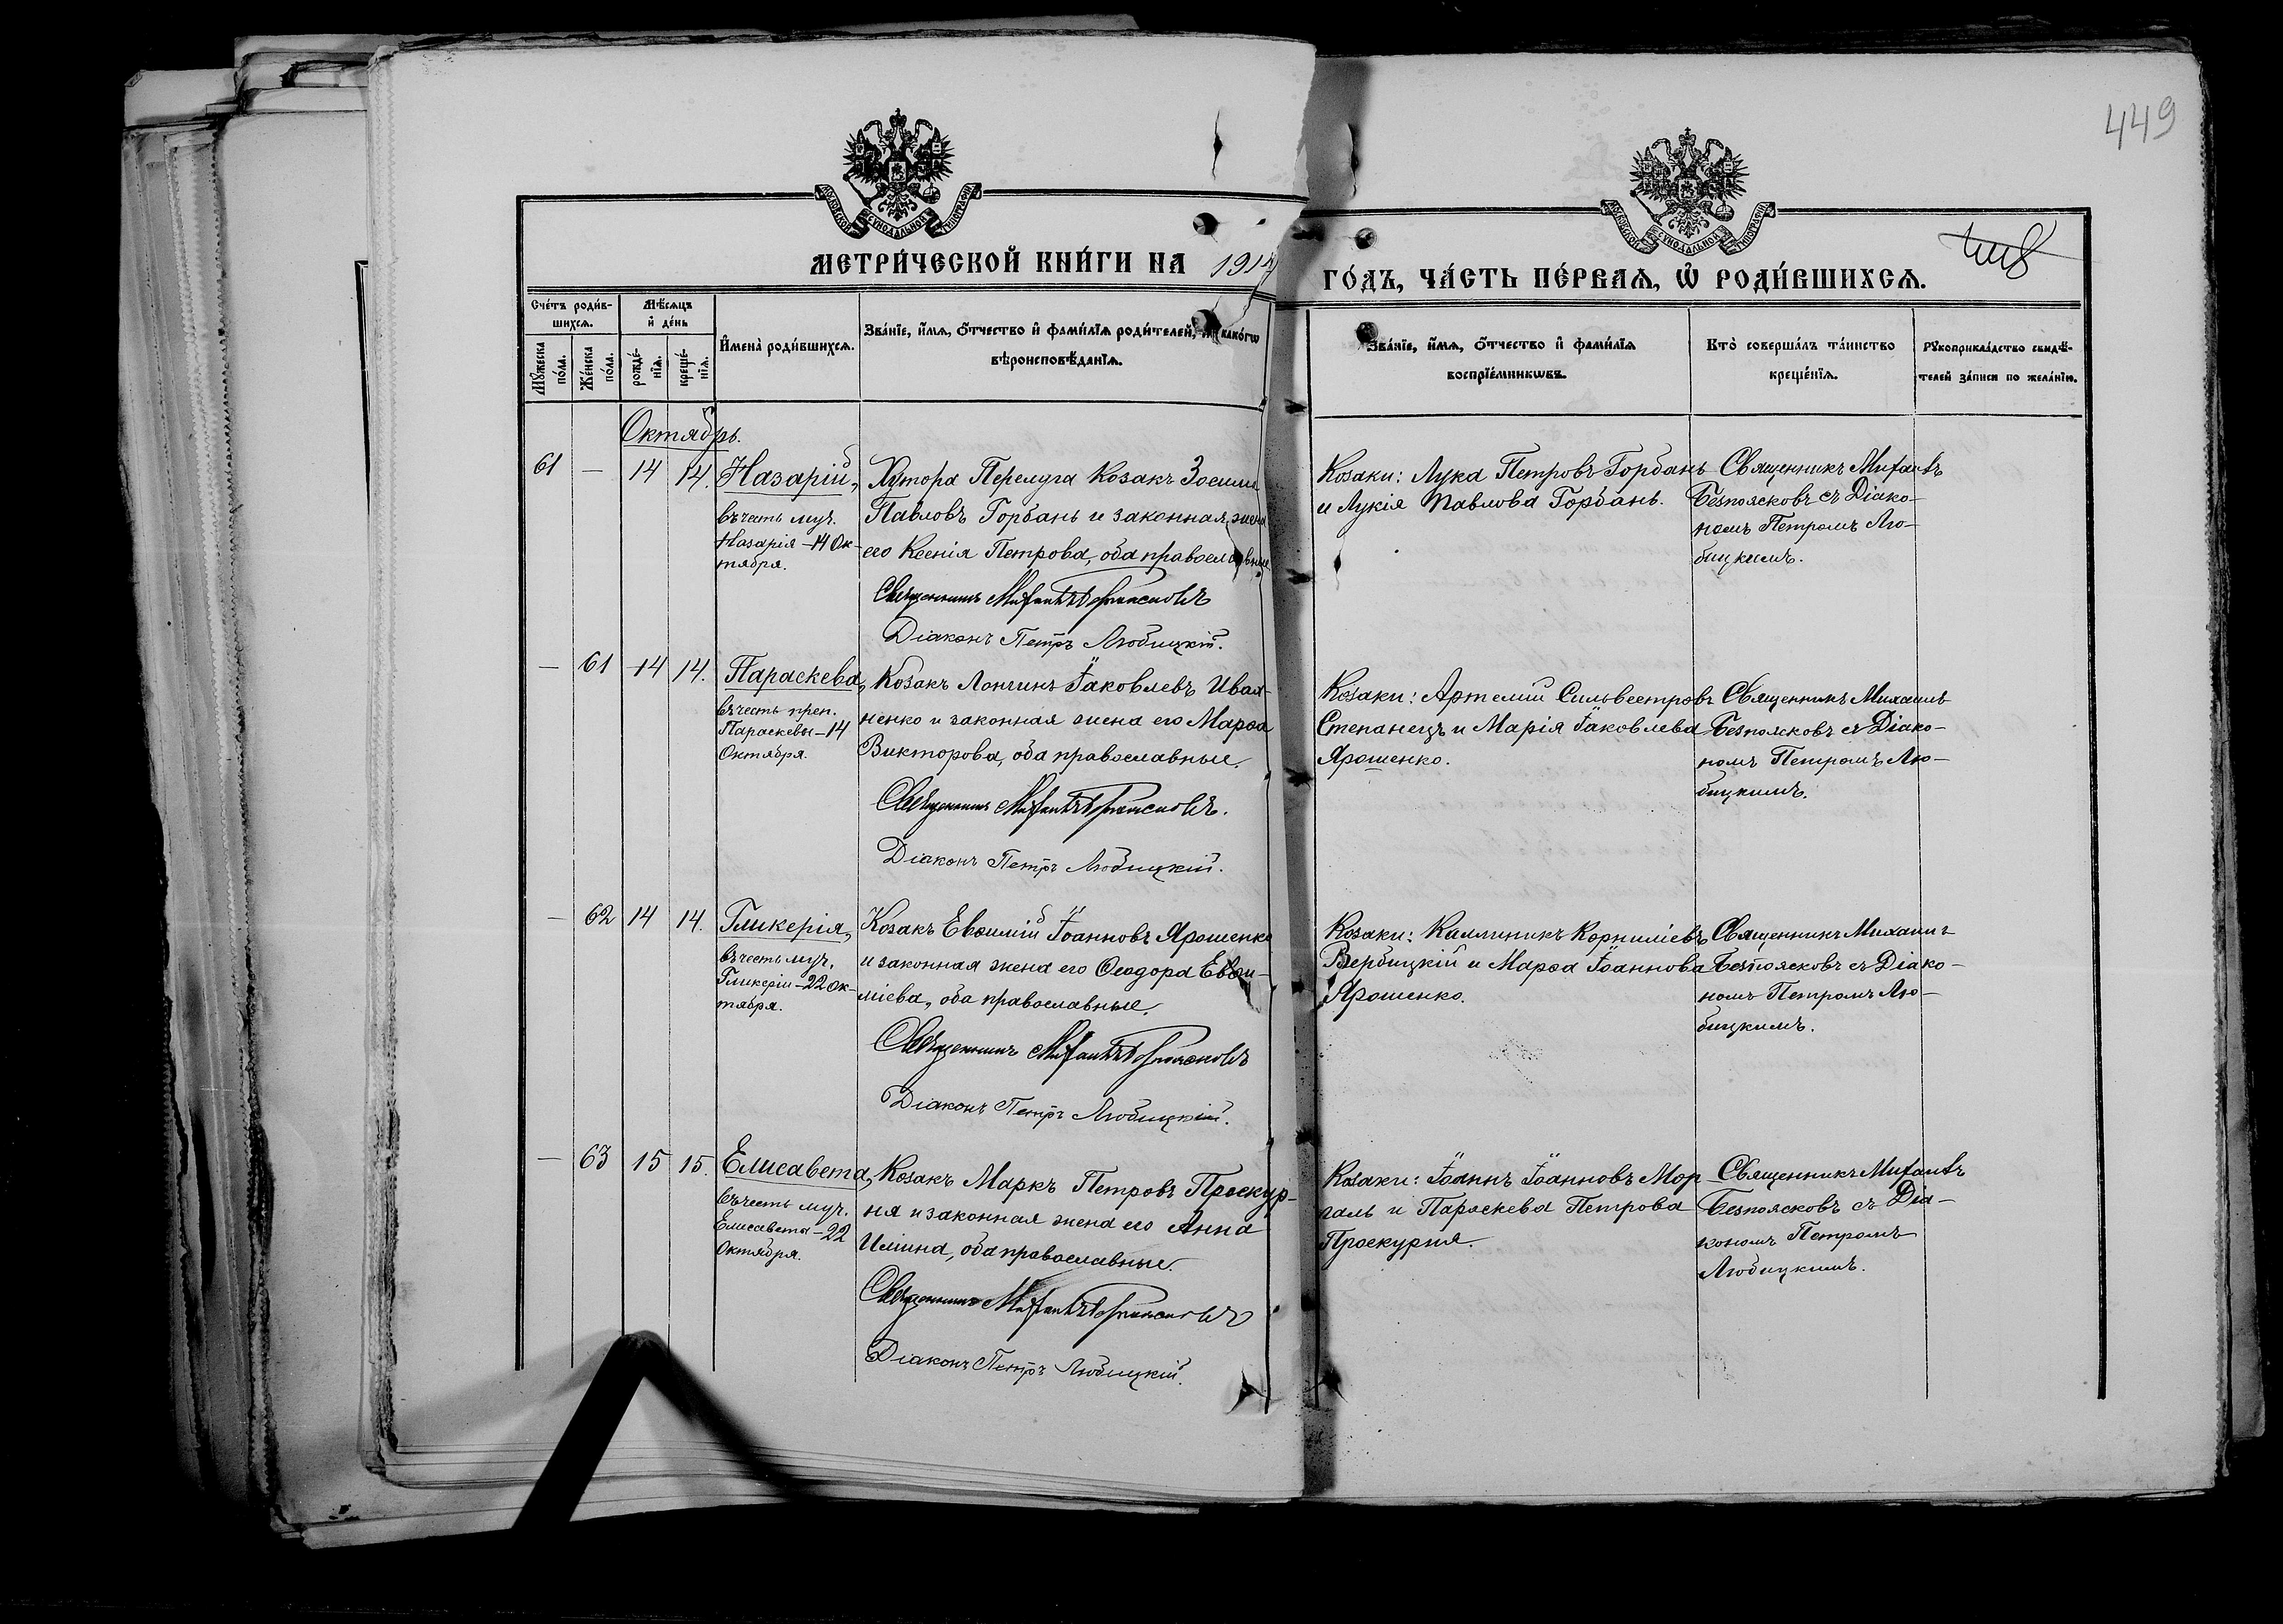 449
МОСКОВСКОЙ СУНОДАЛЬНОЙ ТИПОГРАФИИ
МОСКОВСКОЙ СУНОДАЛЬНОЙ ТИПОГРАФИИ
МЕТРИ́ЧЕСКОЙ КНИ́ГИ НА 1914
ГО́ДЪ, ЧА́СТЬ ПЕ́РВАѦ, Ѡ҆ РОДИ́ВШИХСѦ.
Сче́тъ роди́в-
шихсѧ.
Мѣ́сѧцъ
и҆ де́нь
Мꙋ́жеска
по́ла.
Же́нска
по́ла.
рожде́-
нїѧ.
креще́-
нїѧ.
И҆мена̀ роди́вшихсѧ.
Зва́нїе, и҆́мѧ, ѻ҆́тчество и҆ фами́лїѧ роди́телей, и҆ како́гѡ
вѣроисповѣ́данїѧ.
Зва́нїе, и҆́мѧ, ѻ҆́тчество и҆ фами́лїѧ
воспрїе́мникѡвъ.
Кто̀ соверша́лъ та́инство
креще́нїѧ.
Рꙋкоприкла́дство свидѣ́-
телей за́писи по жела́нїю.
Октябрь.
61 — 14 14. Назарій,
въ честь муч.
Назарія – 14 Ок-
тября.
Хутора Перелуга Козакъ Зосима
Павловъ Горбань и законная жена
его Ксенія Петрова, оба православные
Священникъ Михаилъ Безпоясковъ
Діаконъ Петръ Любицкій.
Козаки: Лука Петровъ Горбань
и Лукія Павлова Горбань.
Священникъ Михаилъ
Безпоясковъ съ Діако-
номъ Петромъ Лю-
бицкимъ.
— 61 14 14. Параскева,
въ честь преп.
Параскевы – 14
Октября.
Козакъ Лонгинъ Іаковлевъ Иван-
ненко и законная жена его Марѳа
Викторова, оба православные.
Священникъ Михаилъ Безпоясковъ.
Діаконъ Петръ Любицкій.
Козаки: Артемій Сильвестровъ
Степанецъ и Марія Іаковлева
Ярошенко.
Священникъ Михаилъ
Безпоясковъ съ Діако-
номъ Петромъ Лю-
бицкимъ.
— 62 14 14. Гликерія,
въ честь муч.
Гликеріи – 22 Ок-
тября.
Козакъ Евѳимій Іоанновъ Ярошенко
и законная жена его Ѳеодора Евѳи-
міева, оба православные.
Священникъ Михаилъ Безпоясковъ
Діаконъ Петръ Любицкій.
Козаки: Каллиникъ Корниліевъ
Вербицкій и Марѳа Іоаннова
Ярошенко.
Священникъ Михаилъ
Безпоясковъ съ Діако-
номъ Петромъ Лю-
бицкимъ.
— 63 15 15. Елисавета,
въ честь муч.
Елисаветы – 22
Октября.
Козакъ Маркъ Петровъ Проскур-
ня и законная жена его Анна
Иліина, оба православные.
Священникъ Михаилъ Безпоясковъ
Діаконъ Петръ Любицкій.
Козаки: Іоаннъ Іоанновъ Мор-
галь и Параскева Петрова
Проскурня.
Священникъ Михаилъ
Безпоясковъ съ Діа-
кономъ Петромъ
Любицкимъ.